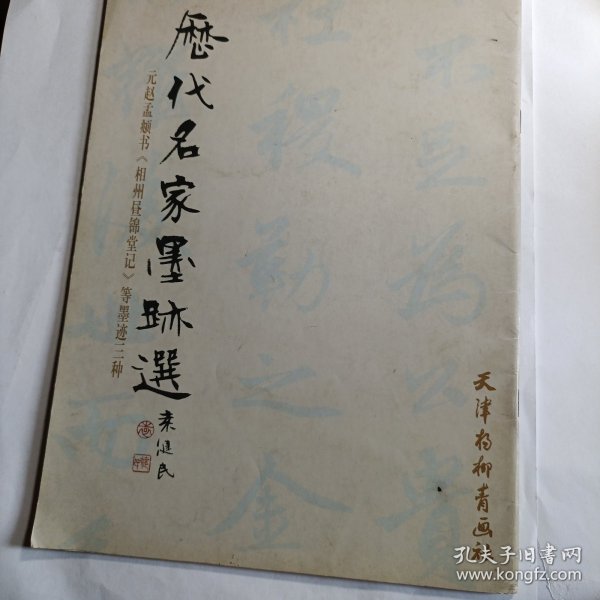 歷代名家墨跡選
元赵孟頫书《相州昼锦堂记》等墨迹三种
天津杨柳青画社
孔夫子旧书网
www.kongfz.com